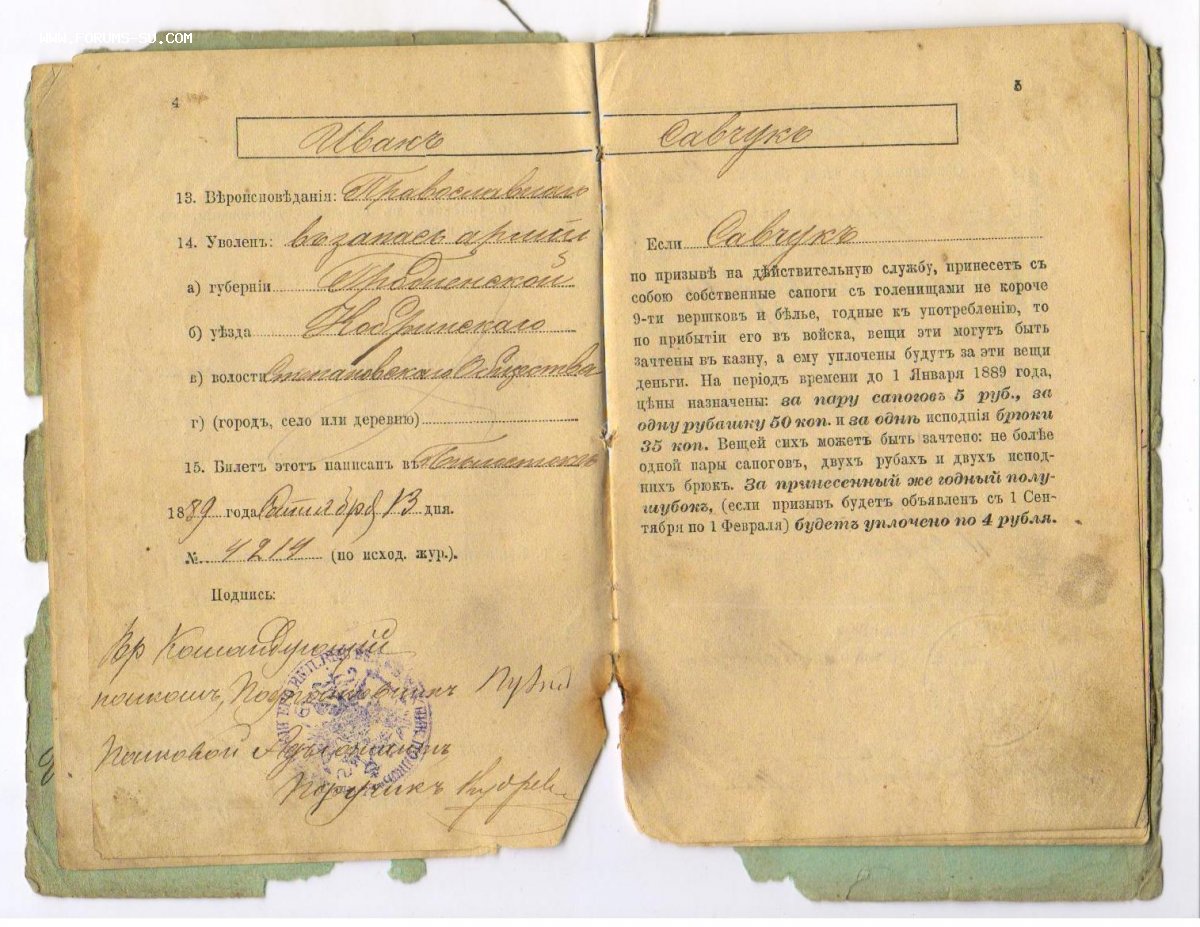 WWW.FORUMS-SU.COM
4
Иванъ
13. Вѣроисповѣданія: Православнаго
14. Уволенъ: въ запасъ арміи
а) губерніи Гродненской
б) уѣзда Кобринскаго
в) волости Степановскаго Общества
г) (городъ, село или деревню)
15. Билетъ этотъ написанъ въ
1889 года Октября 13 дня.
№ 4214 (по исход. жур.).
Подпись:
Вр Командующій
полкомъ, Подполковникъ
Полковой Адъютантъ
Поручикъ
5
Савчукъ
Если Савчукъ
по призывѣ на дѣйствительную службу, принесетъ съ
собою собственные сапоги съ голенищами не короче
9-ти вершковъ и бѣлье, годные къ употребленію, то
по прибытіи его въ войска, вещи эти могутъ быть
зачтены въ казну, а ему уплочены будутъ за эти вещи
деньги. На періодъ времени до 1 Января 1889 года,
цѣны назначены: за пару сапоговъ 5 руб., за
одну рубашку 50 коп. и за однѣ исподнія брюки
35 коп. Вещей сихъ можетъ быть зачтено: не болѣе
одной пары сапоговъ, двухъ рубахъ и двухъ испод-
нихъ брюкъ. За принесенный же годный полу-
шубокъ, (если призывъ будетъ объявленъ съ 1 Сен-
тября по 1 Февраля) будетъ уплочено по 4 рубля.